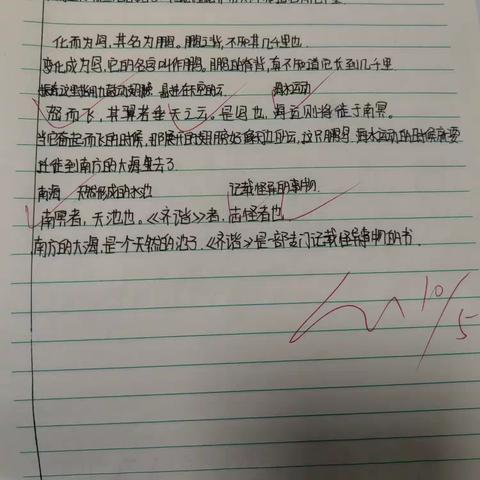 化而为鸟,其名为鹏。鹏之背,不知其几千里也
变化成为鸟,它的名字叫作鹏。鹏的脊背,真不知道它长到几千里.
海水运动
怒而飞,其翼若垂天之云。是鸟也,海运则将徙于南冥。
当它奋起而飞的时候,那展开的翅膀就好像天边的云,这只鹏鸟,海水运动的时候就要
迁徙到南方的大海里去了
南海 天然形成的水池 记载怪异的事物.
南冥者,天池也。《齐谐》者,志怪者也
南方的大海,是个天然的池子.《齐谐》是一部专门记载怪异事物的书.
10/5